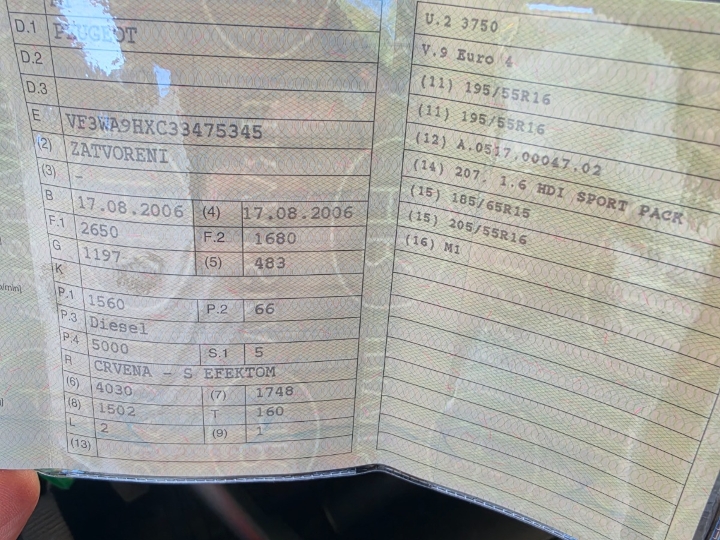 D.1 PEUGEOT
D.2
D.3
E VF3WA9HXC33475345
(2) ZATVORENI
(3) -
B 17.08.2006 (4) 17.08.2006
F.1 2650 F.2 1680
G 1197 (5) 483
K
P.1 1560 P.2 66
P.3 Diesel
P.4 5000 S.1 5
R CRVENA - S EFEKTOM
(6) 4030 (7) 1748
(8) 1502 T 160
L 2 (9) 1
(13)
U.2 3750
V.9 Euro 4
(11) 195/55R16
(11) 195/55R16
(12) A.0517.00047.02
(14) 207. 1.6 HDI SPORT PACK
(15) 185/65R15
(15) 205/55R16
(16) M1